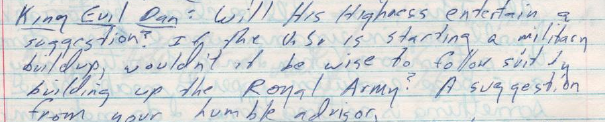 King Evil Dan: Will His Highness entertain a
suggestion? If the U.S. is starting a military
buildup, wouldn't it be wise to follow suit by
building up the Royal Army? A suggestion
from your humble advisor,